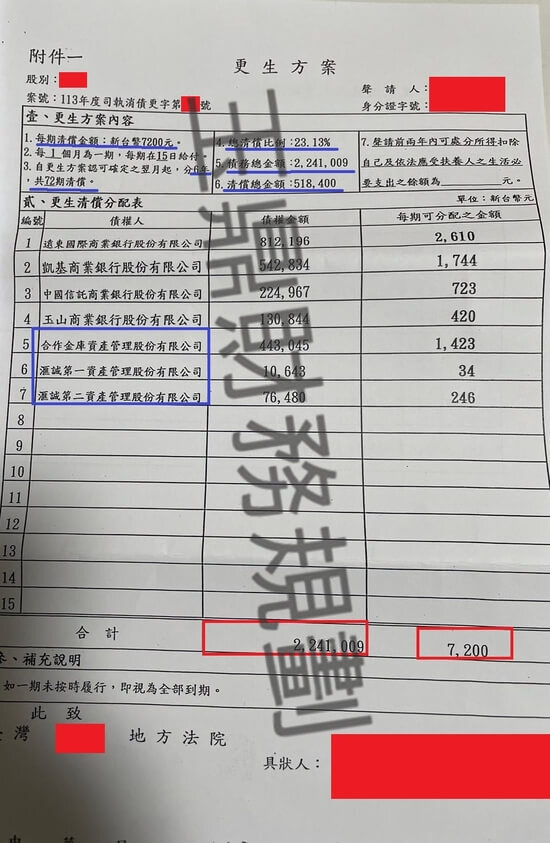 附件一
更生方案
股別：
聲請人：
案號：113年度司執消債更字第 號
身分證字號：
壹、更生方案內容
1. 每期清償金額：新台幣7200元。
2. 每 1 個月為一期，每期在15日給付。
3. 自更生方案認可確定之翌月起，分6年，共72期清償。
4. 總清償比例：23.13%
5. 債務總金額：2,241,009
6. 清償總金額：518,400
7. 聲請前兩年內可處分所得扣除
自己及依法應受扶養人之生活必
要支出之餘額為 元。
貳、更生清償分配表
單位：新台幣元
編號 債權人 債權金額 每期可分配之金額
1 遠東國際商業銀行股份有限公司 812,196 2,610
2 凱基商業銀行股份有限公司 542,834 1,744
3 中國信託商業銀行股份有限公司 224,967 723
4 玉山商業銀行股份有限公司 130,844 420
5 合作金庫資產管理股份有限公司 443,045 1,423
6 滙誠第一資產管理股份有限公司 10,643 34
7 滙誠第二資產管理股份有限公司 76,480 246
8
9
10
11
12
13
14
15
合計 2,241,009 7,200
參、補充說明
如一期未按時履行，即視為全部到期。
此致
灣 地方法院
具狀人：
玉鼎財務規劃